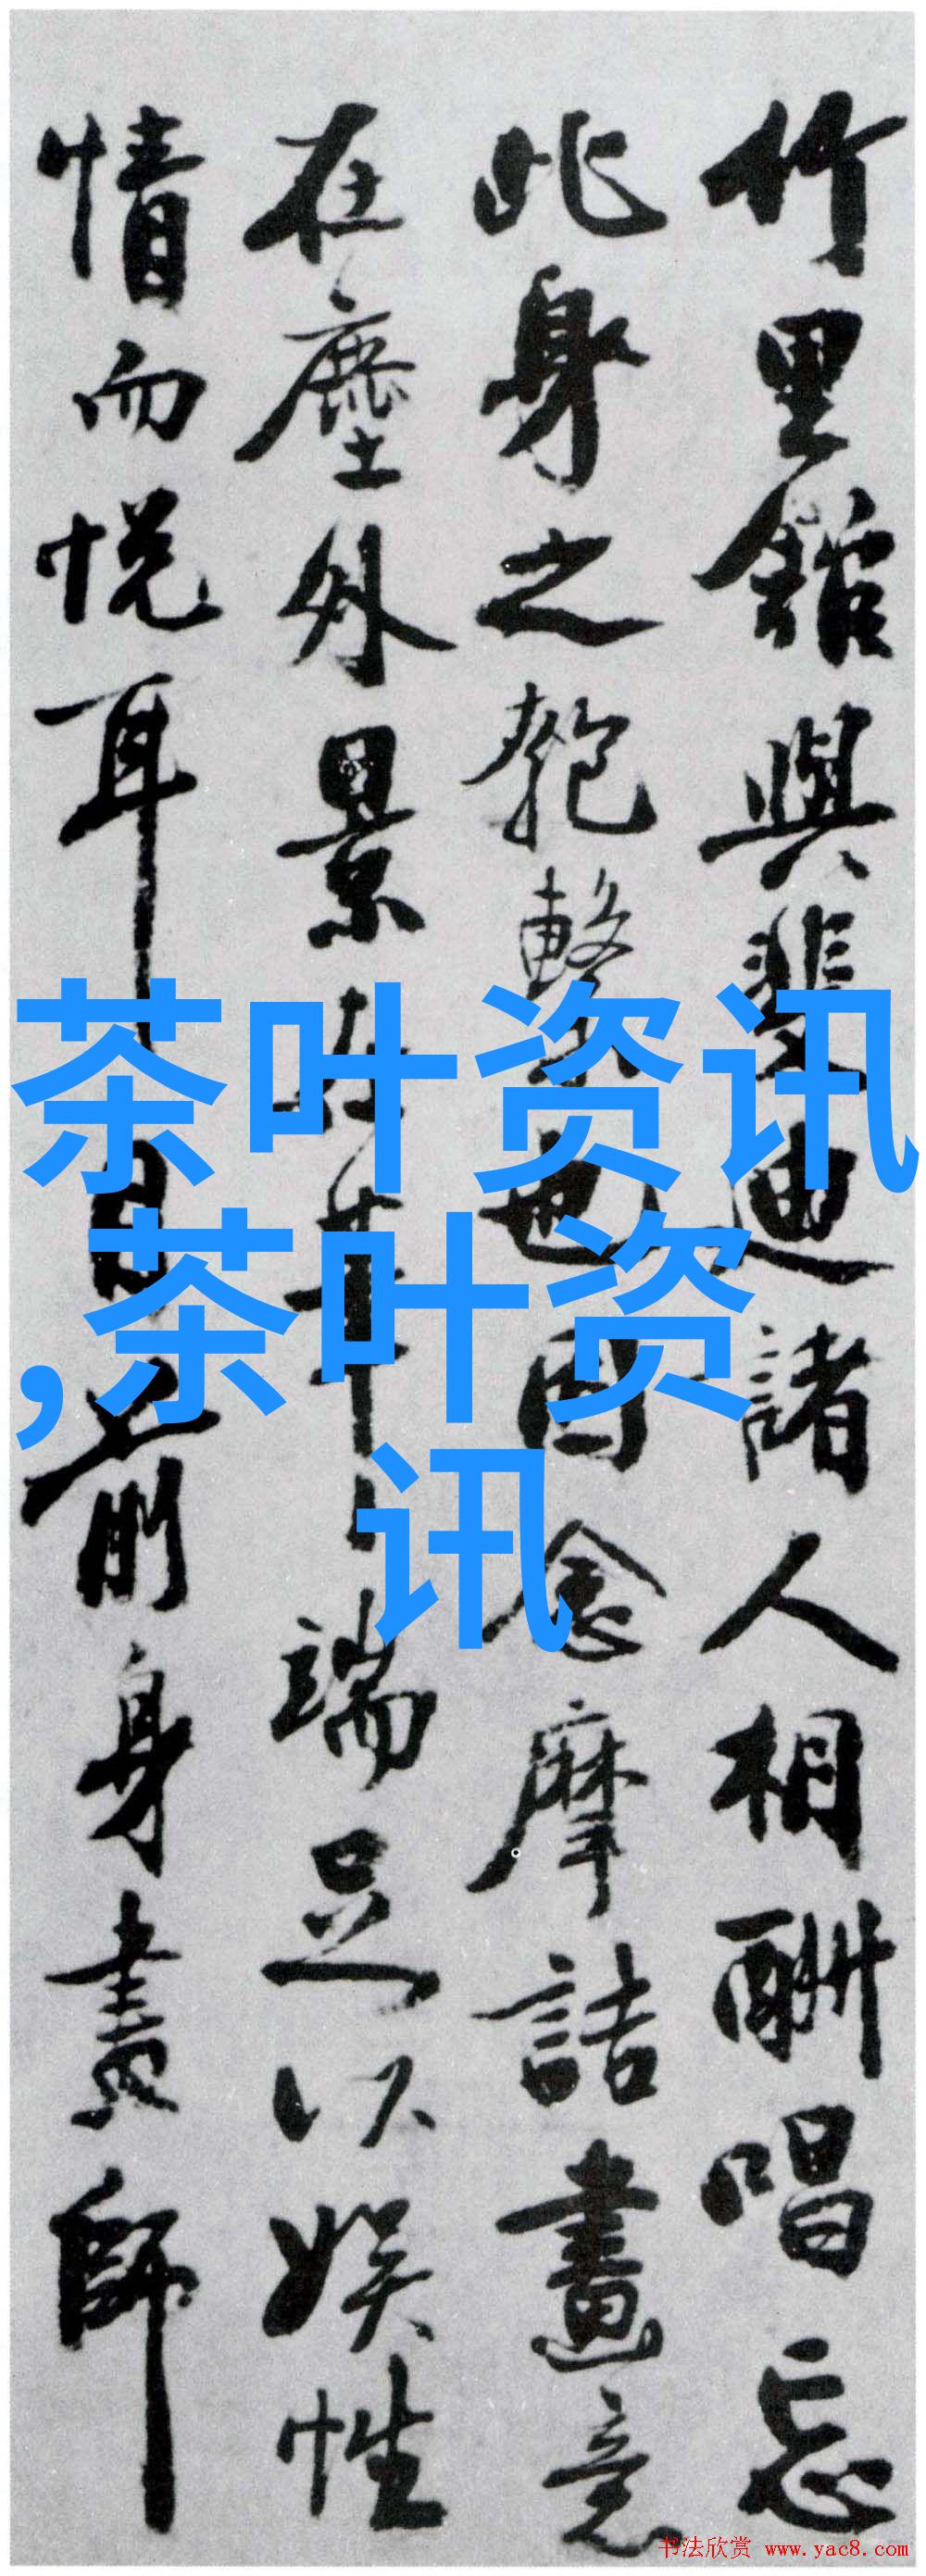 竹里館與裴迪諸人相酬唱忘
此身之匏繫也因念摩詰畫意
在塵外景在筆端足以娛性
情而悅耳目前身畫師
茶叶资讯
,茶叶资
讯
书法欣赏 www.yac8.com